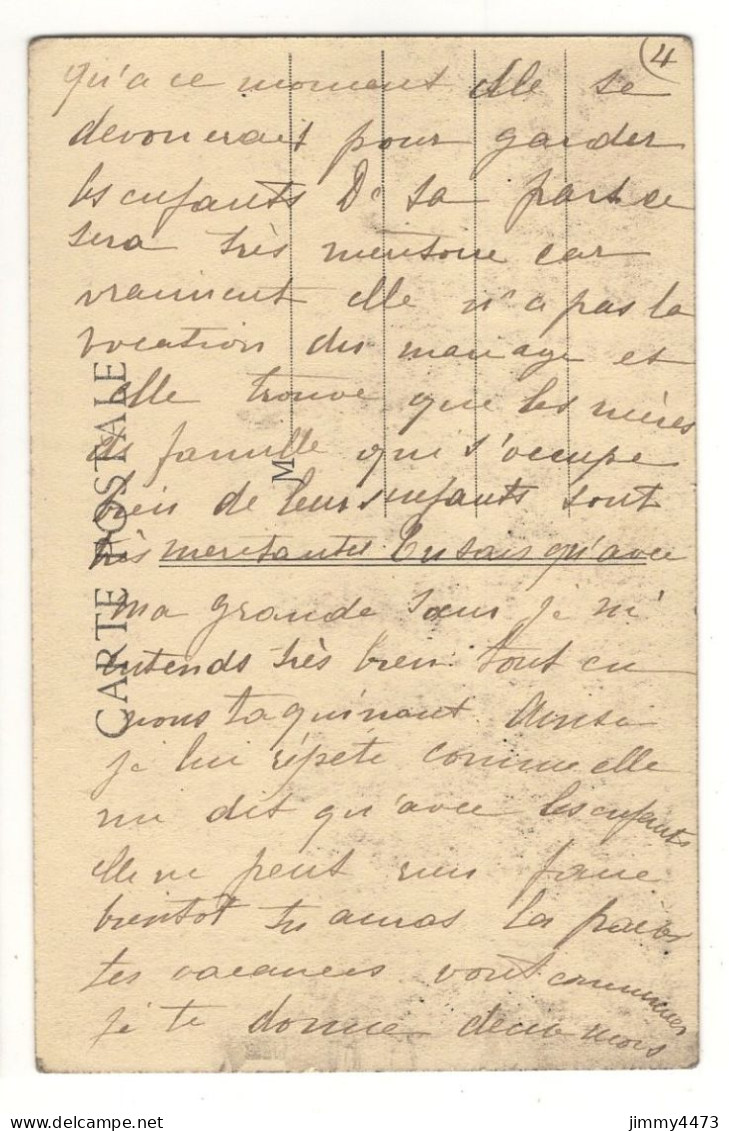 4
qu'a ce moment elle se
devouerait pour garder
les enfants De sa part ce
sera très meritoire car
vraiment elle n'a pas la
vocation du mariage et
elle trouve que les mères
de famille qui s'occupe
bien de leurs enfants sont
très meritantes Tu sais qu'avec
ma grande sœur je m'
entends très bien tout en
nous taquinant. Ainsi
je lui répète comme elle
me dit qu'avec les enfants
elle ne peut rien faire
bientot tu auras la paix
tes vacances vont commencer
je te donne deux mois
CARTE POSTALE
M
jimmy4473